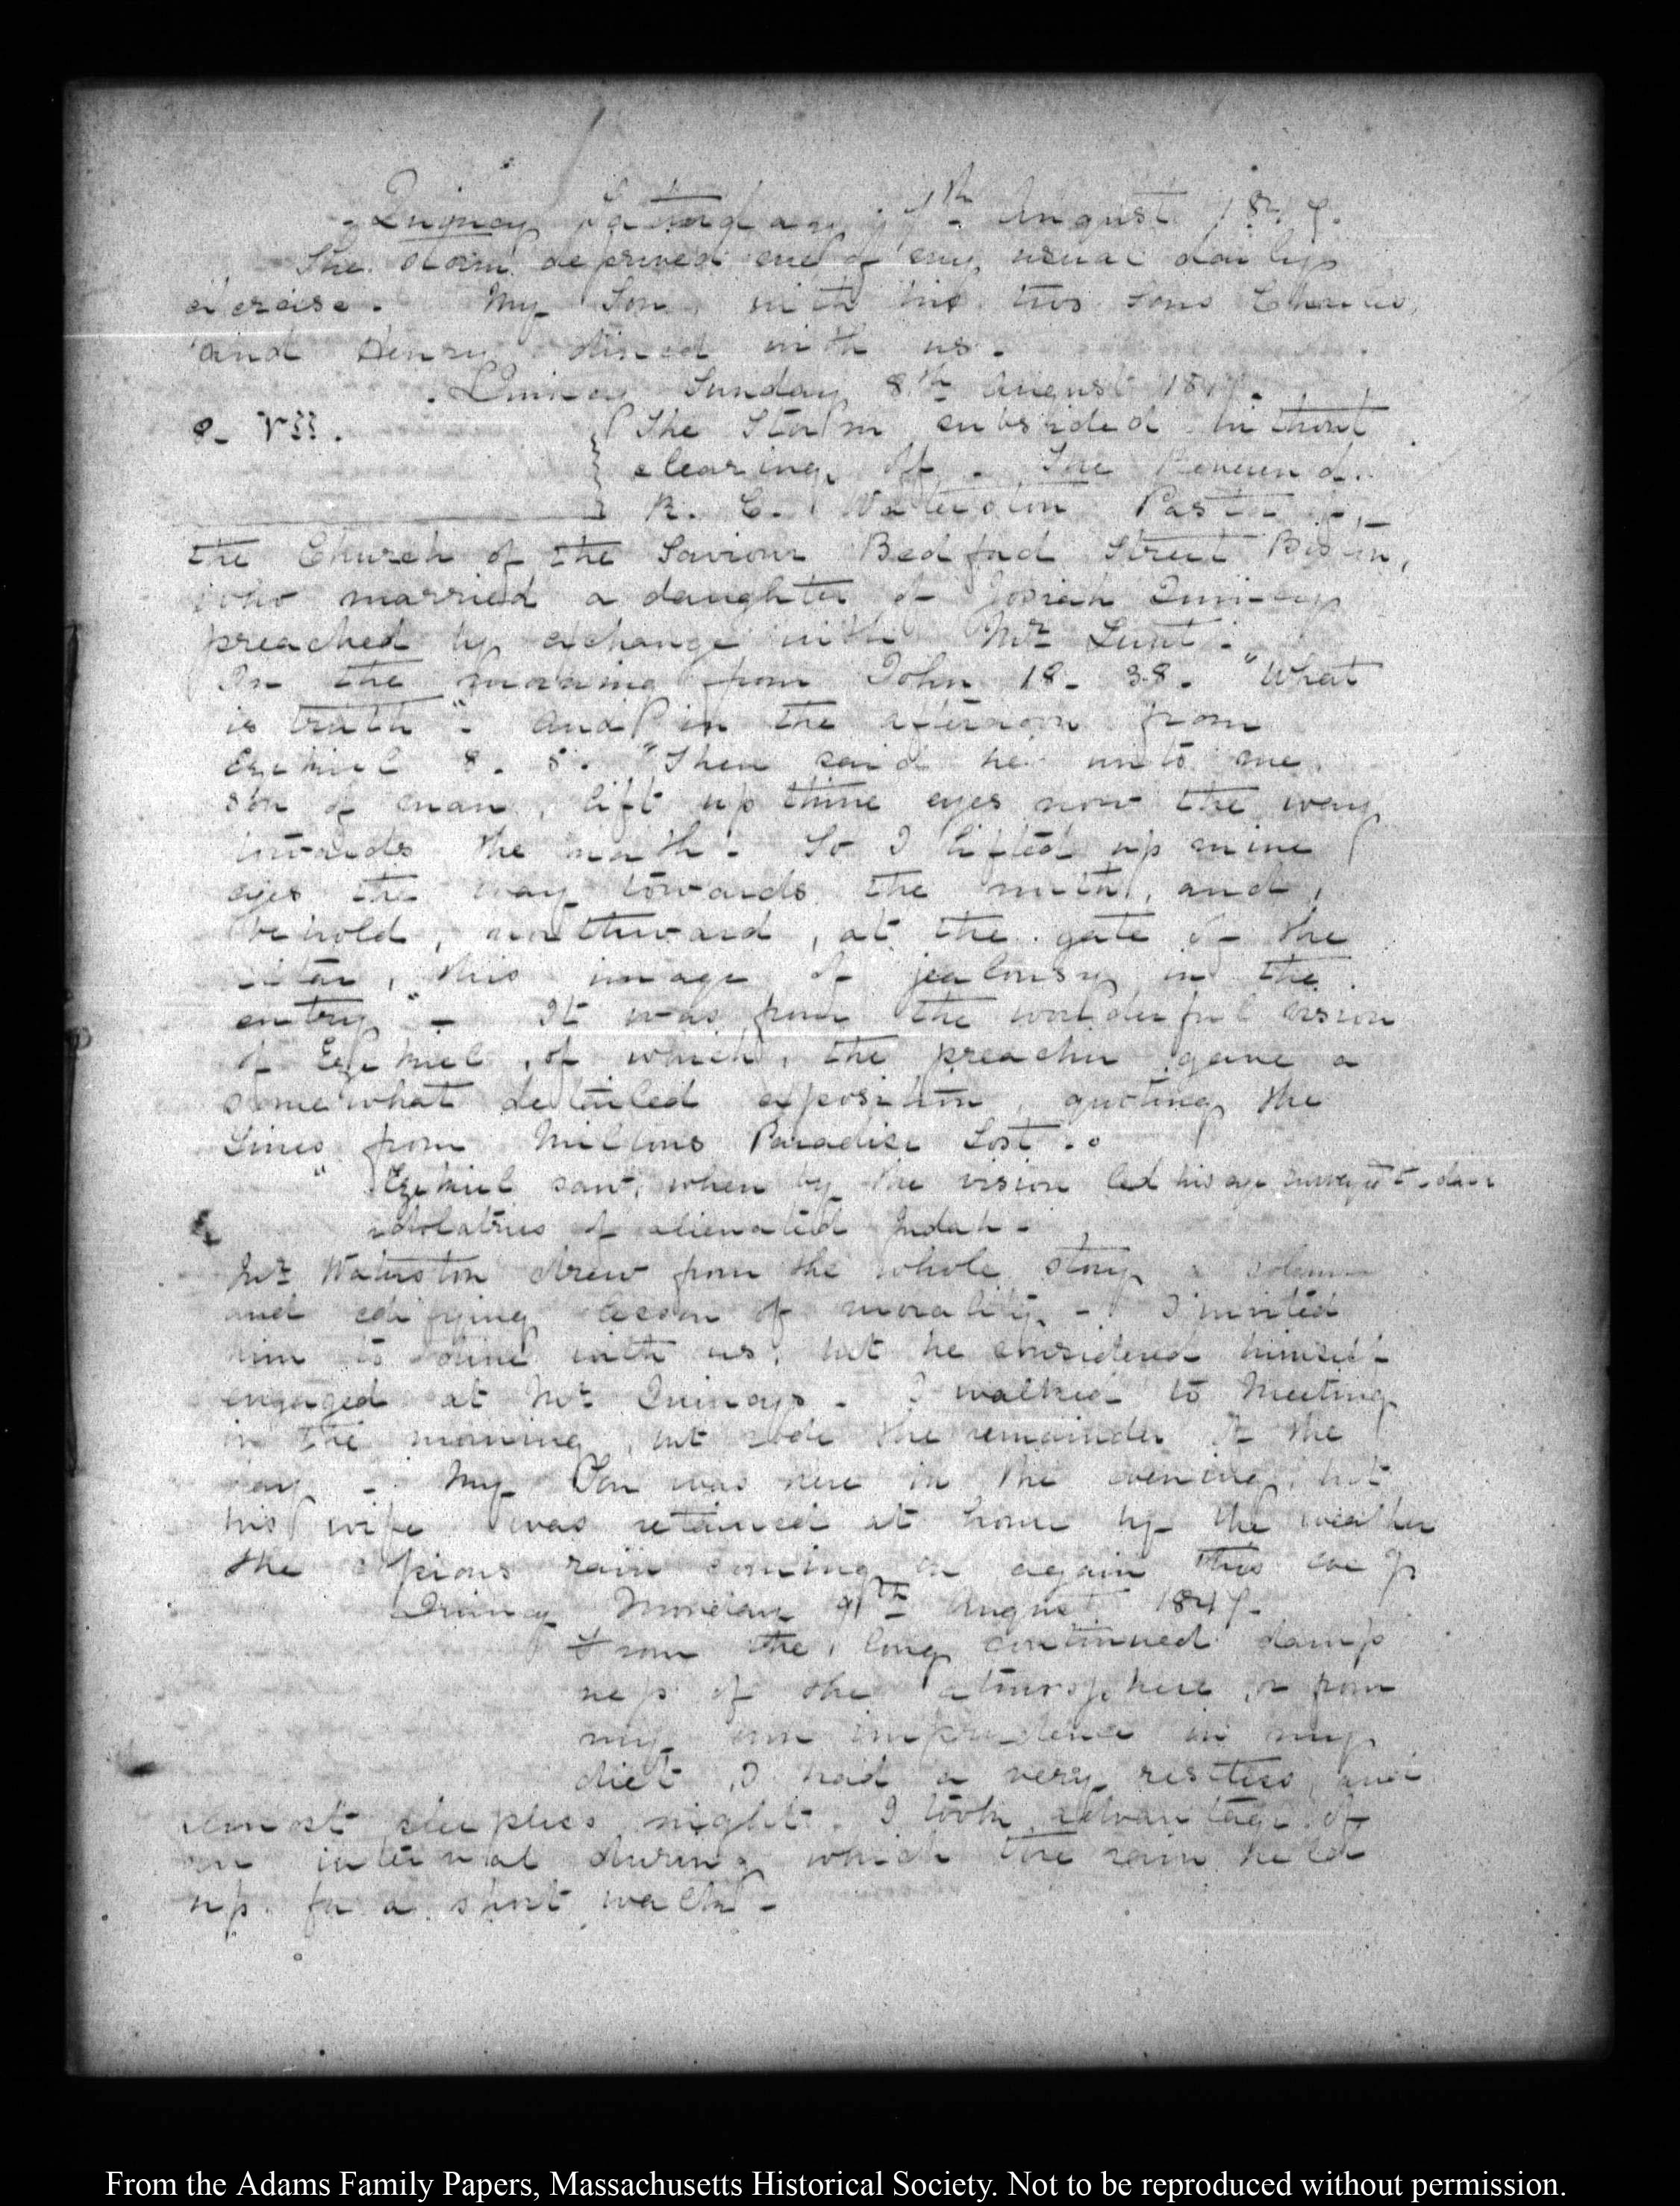 Quincy Saturday 7th August 1847.
The storm deprived me of my usual daily
exercise. My Son, with his two Sons Charles,
and Henry dined with us.
Quincy Sunday 8th August 1847.
VII. The Storm subsided without
clearing off. The Reverend
R. C. Waterston Pastor of
the Church of the Saviour Bedford Street Boston,
who married a daughter of Josiah Quincy
preached by exchange with Mr Lunt.
In the morning from John 18. 38. "What
is truth". And in the afternoon from
Ezekiel 8. 5. "Then said he unto me
son of man, lift up thine eyes now the way
towards the north. So I lifted up mine
eyes the way towards the north, and,
behold, northward, at the gate of the
altar, this image of jealousy in the
entry" - It was from the wonderful vision
of Ezekiel, of which, the preacher gave a
somewhat detailed exposition, quoting the
Lines from Miltons Paradise Lost.
"Ezekiel saw, when by the vision led his eye survey'd the dark
idolatries of alienated Judah -
Mr Waterston drew from the whole story a solemn
and edifying lesson of morality. - I invited
him to dine with us, but he considered himself
engaged at Mr Quincy's - I walked to Meeting
in the morning, but rode the remainder of the
day - My Son was here in the evening, but
his wife was retained at home by the weather
the copious rain coming on again this eve g
Quincy Monday 9th August 1847.
From the long continued damp
ness of the atmosphere, or from
my own imprudence in my
diet, I had a very restless, and
almost sleepless night. I took advantage of
an interval during which the rain held
up for a short walk -
From the Adams Family Papers, Massachusetts Historical Society. Not to be reproduced without permission.